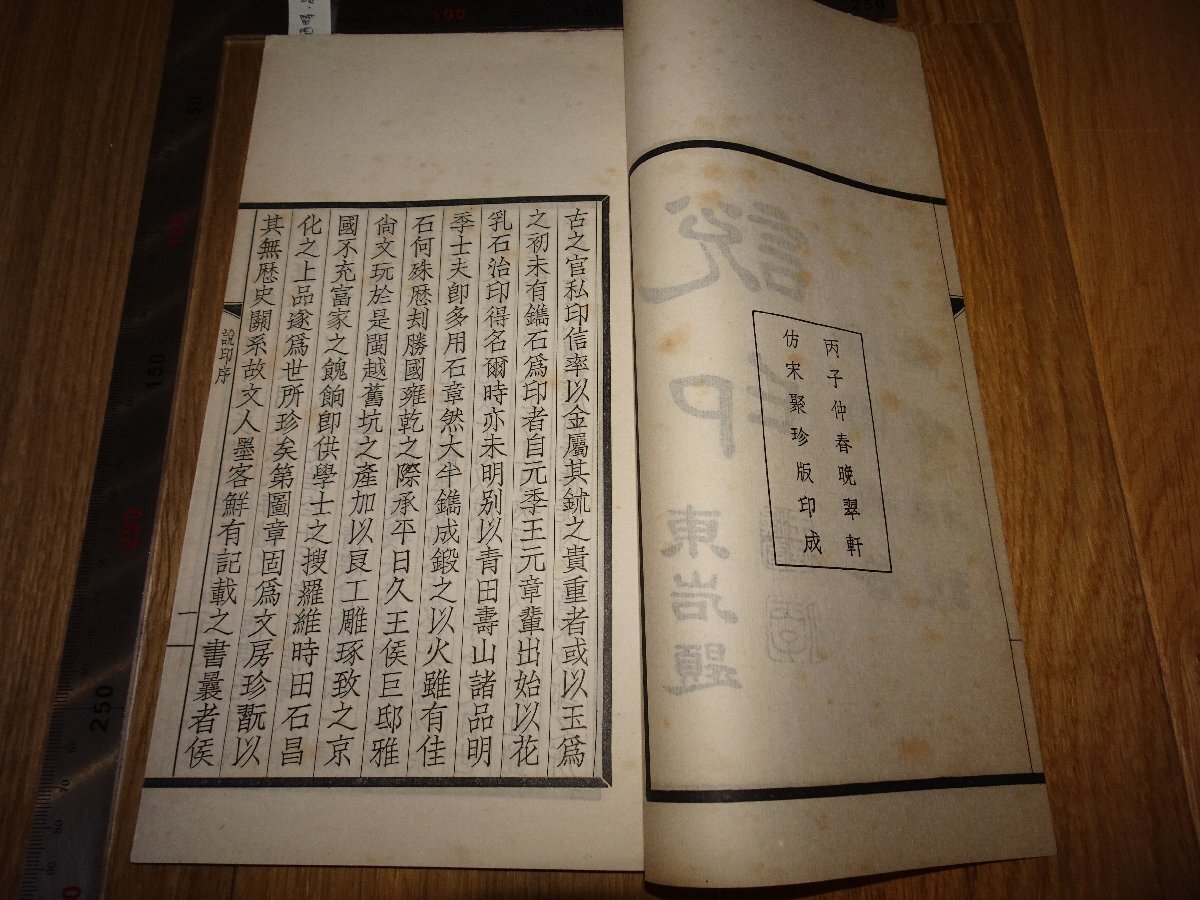 說印
東岩題
丙子仲春晚翠軒
仿宋聚珍版印成
古之官私印信率以金屬其鉥之貴重者或以玉爲
之初未有鐫石爲印者自元季王元章輩出始以花
乳石治印得名爾時亦未明别以青田壽山諸品明
季士夫卽多用石章然大半鐫成鍛之以火雖有佳
石何殊歷刦勝國雍乾之際承平日久王侯巨邸雅
尙文玩於是閩越舊坑之產加以良工雕琢致之京
國不充富家之餽餉卽供學士之搜羅維時田石昌
化之上品遂爲世所珍矣第圖章固爲文房珍翫以
其無歷史關系故文人墨客鮮有記載之書曩者侯
說印序
一
100
150
250
50
100
150
200
250